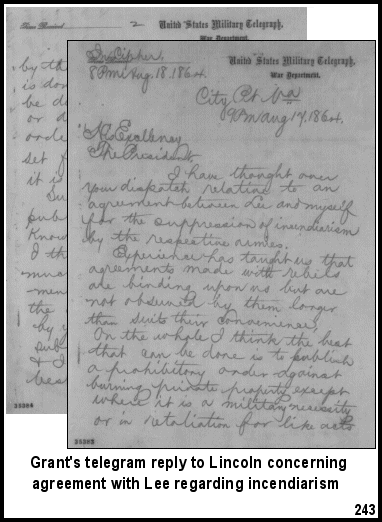 2
United States Military Telegraph,
War Department.
by th
is don
be d
or d
orde
set f
it is
pub
Know
I th
-men
the
by y
& I
35384
In Cipher.
8 PM Aug. 18. 1864.
United States Military Telegraph,
War Department.
City Pt. Va
9 PM Aug 17. 1864.
His Excellency
The President.
I have thought over
your dispatch relating to an
agreement between Lee and myself
for the suppression of incendiarism
by the respective armies.
Experience has taught us that
agreements made with rebels
are binding upon us but are
not observed by them longer
than suits their convenience.
On the whole I think the best
that can be done is to publish
a prohibitory order against
burning private property except
where it is a military necessity
or in retaliation for like acts
35383
Grant's telegram reply to Lincoln concerning
agreement with Lee regarding incendiarism
243